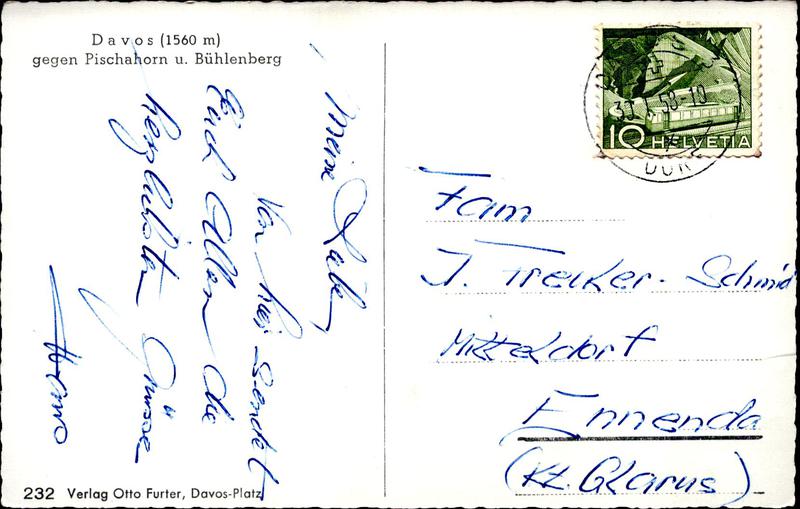 Davos (1560 m)
gegen Pischahorn u. Bühlenberg
Meine Lieben,
Von hier sendet
Euch Allen die
herzlichsten Grüsse
10 HELVETIA
DORF
Fam
J. Trecker-Schmid
Mitteldorf
Ennenda
(Kt. Glarus)
232 Verlag Otto Furter, Davos-Platz